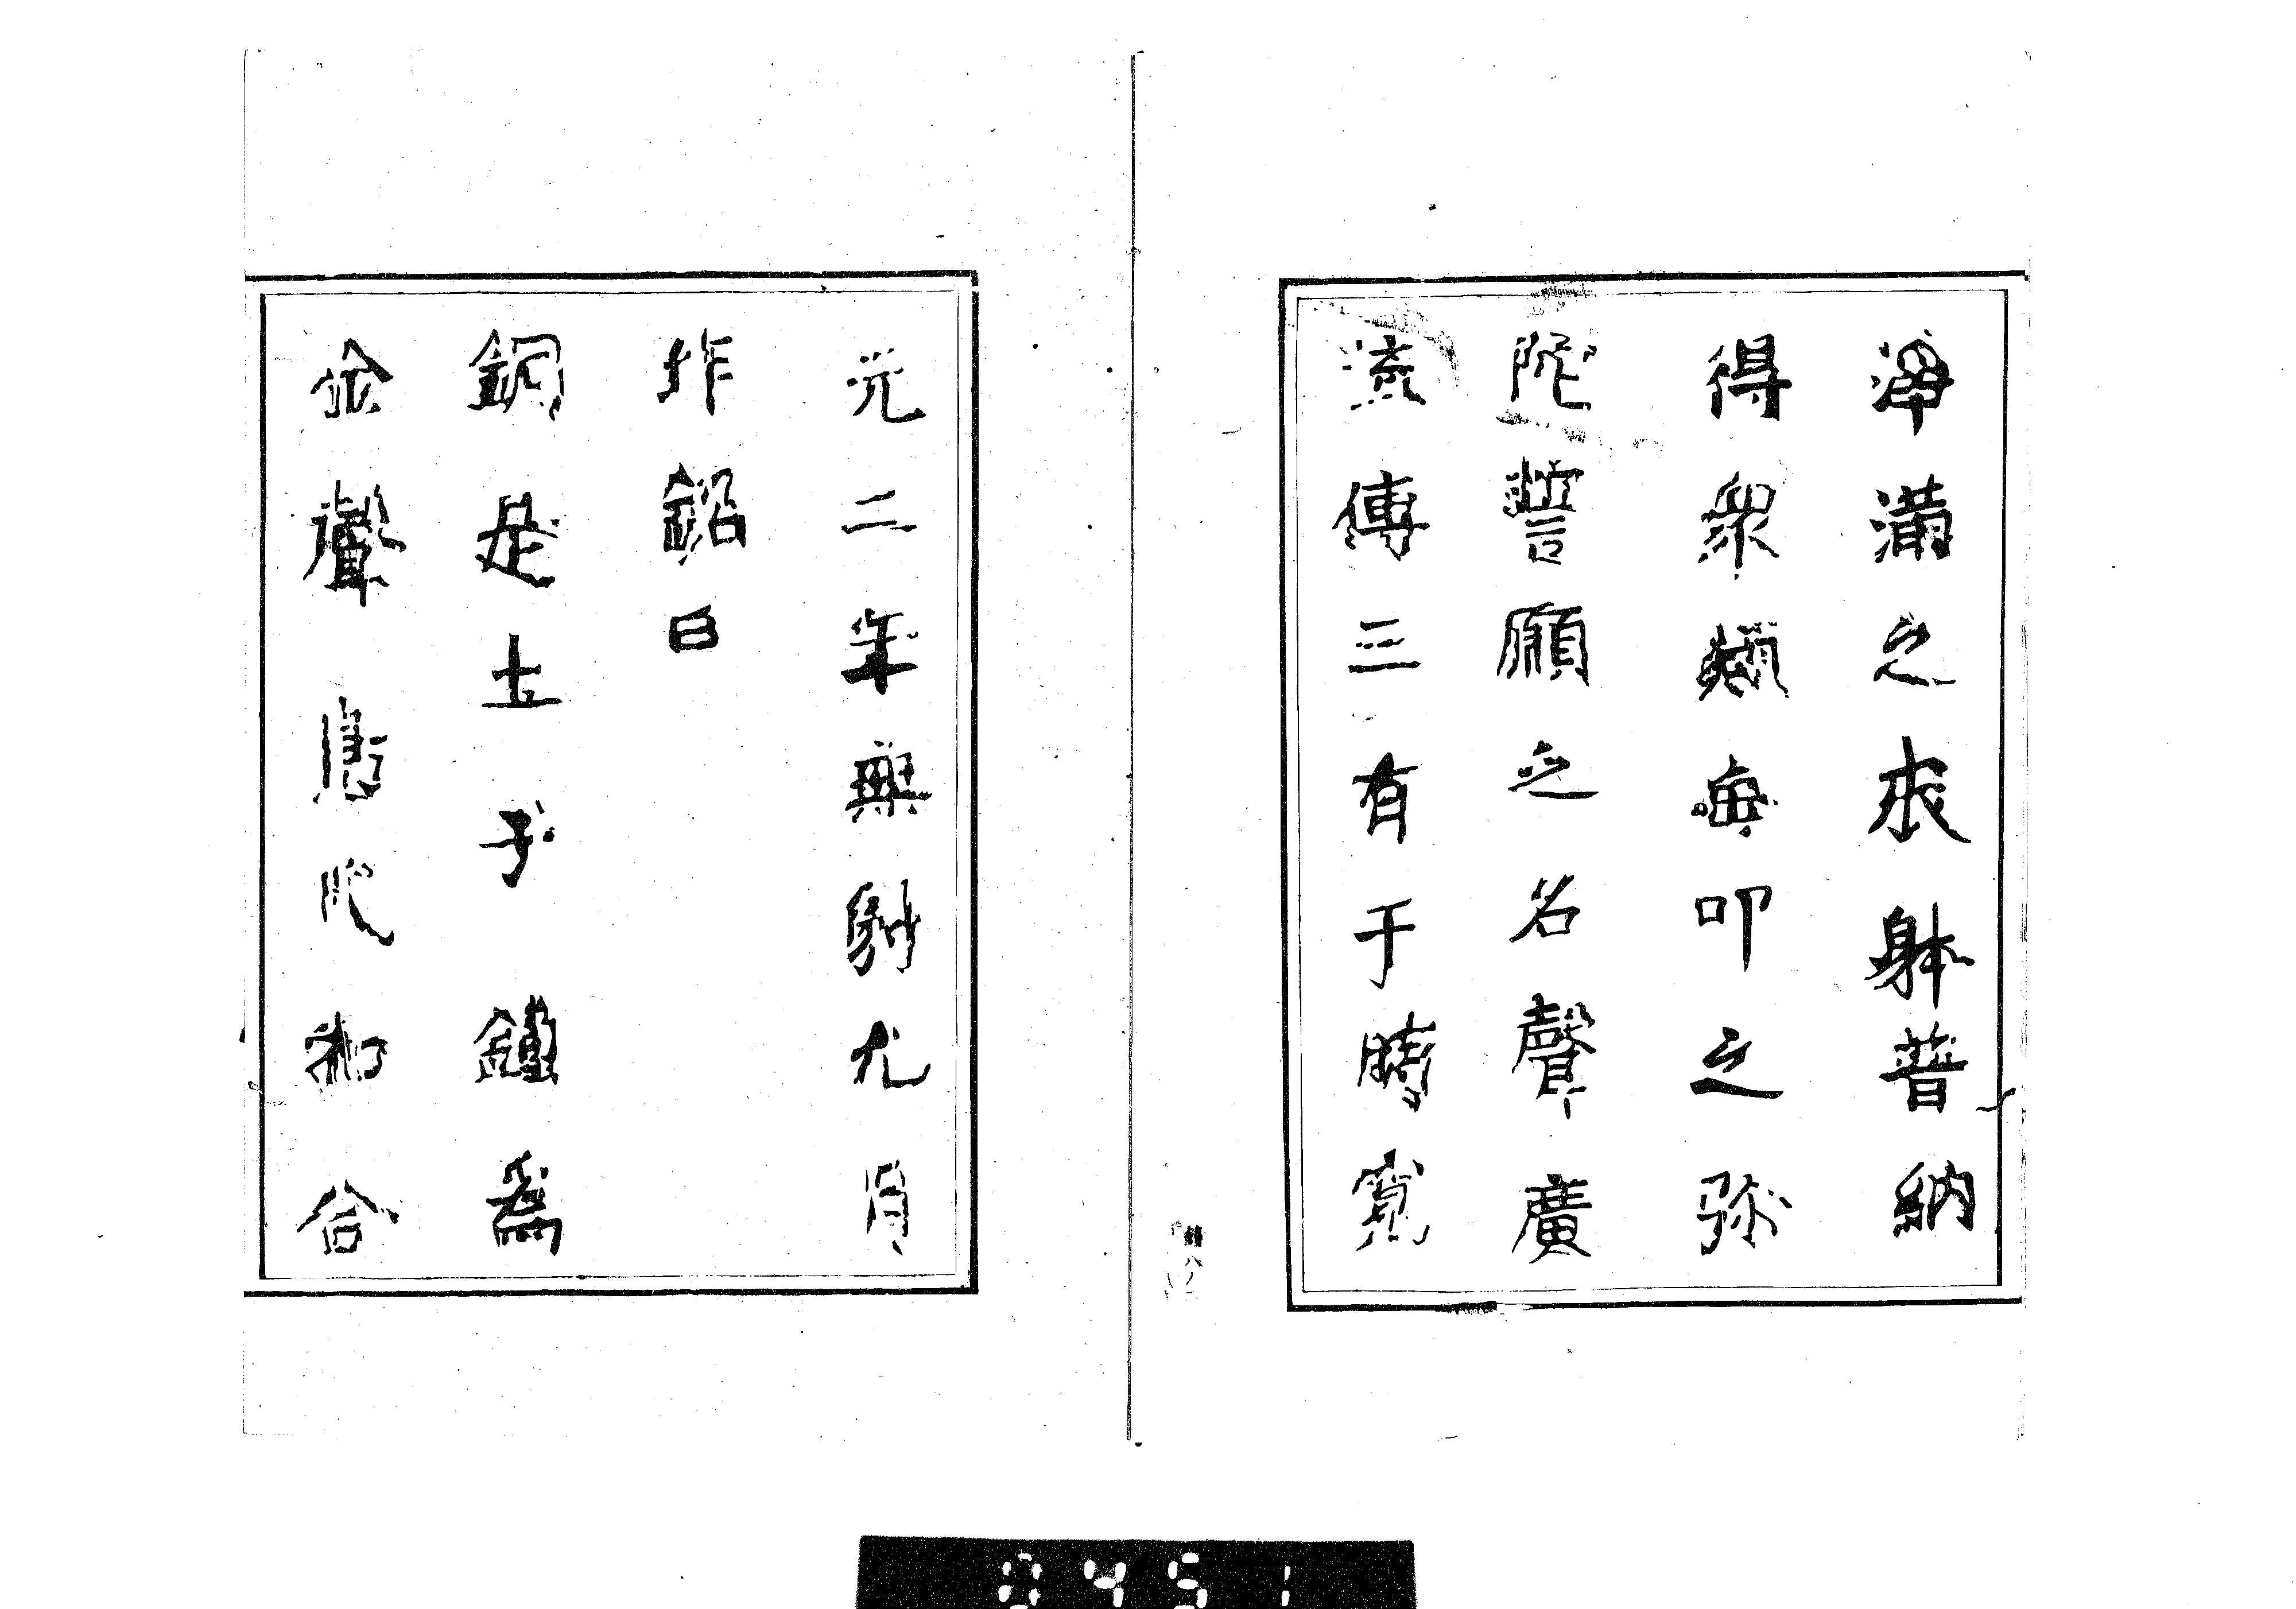 淨満之求躰普納
得衆類毎叩之弥
陀誓願之名聲廣
流傳三有于時寛
元二年無射九月
作銘曰
銅是土子鐘爲
金聲 唐
合
0451